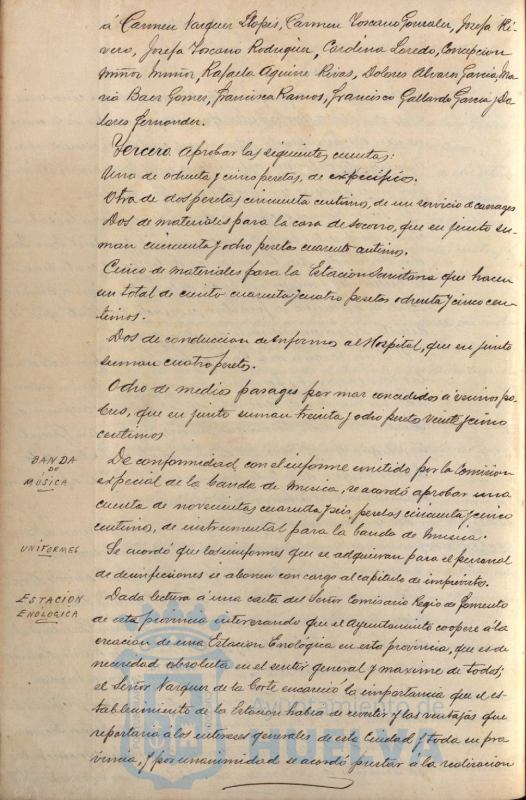 á Carmen Vazquez Llopis, Carmen Toscano Gonzalez, Josefa Ri-
vero, Josefa Toscano Rodriguez, Carolina Loredo, Concepcion
Muñoz Muñoz, Rafaela Aguirre Rivas, Dolores Alvarez Garcia, Ma-
ria Baez Gomez, Francisca Ramos, Francisco Gallardo Garcia y Do-
lores Fernandez.
Tercero. Aprobar las siguientes cuentas:
Una de ochenta y cinco pesetas, de especificos.
Otra de dos pesetas cincuenta centimos, de un servicio de carruages
Dos de materiales para la casa de socorro, que en junto su-
man cincuenta y ocho pesetas cuarenta centimos.
Cinco de materiales para la Estacion Sanitaria que hacen
un total de ciento cuarenta y cuatro pesetas ochenta y cinco cen-
timos.
Dos de conduccion de enfermos al Hospital, que en junto
suman cuatro pesetas.
Ocho de medios pasages por mar concedidos á vecinos po-
bres, que en junto suman treinta y ocho pesetas veinte y cinco
centimos
BANDA
DE
MUSICA
De conformidad con el informe emitido por la Comision
especial de la banda de musica, se acordó aprobar una
cuenta de novecientas cuarenta y seis pesetas cincuenta y cinco
centimos, de instrumental para la banda de musica.
UNIFORMES
Se acordó que los uniformes que se adquieran para el personal
de desinfecciones se abonen con cargo al capitulo de imprevistos.
ESTACION
ENOLOGICA
Dada lectura á una carta del Señor Comisario Regio de Fomento
de esta provincia interesando que el Ayuntamiento coopere á la
creacion de una Estacion Enológica en esta provincia, que es de
necesidad absoluta en el sentir general y maxime de todos;
el Señor Vazquez de la Corte encareció la importancia que el es-
tablecimiento de la Estacion habia de revestir y las ventajas que
reportaria á los intereses generales de esta Ciudad y toda su pro-
vincia, y por unanimidad se acordó prestar á la realizacion
Ayuntamiento de
HUELVA